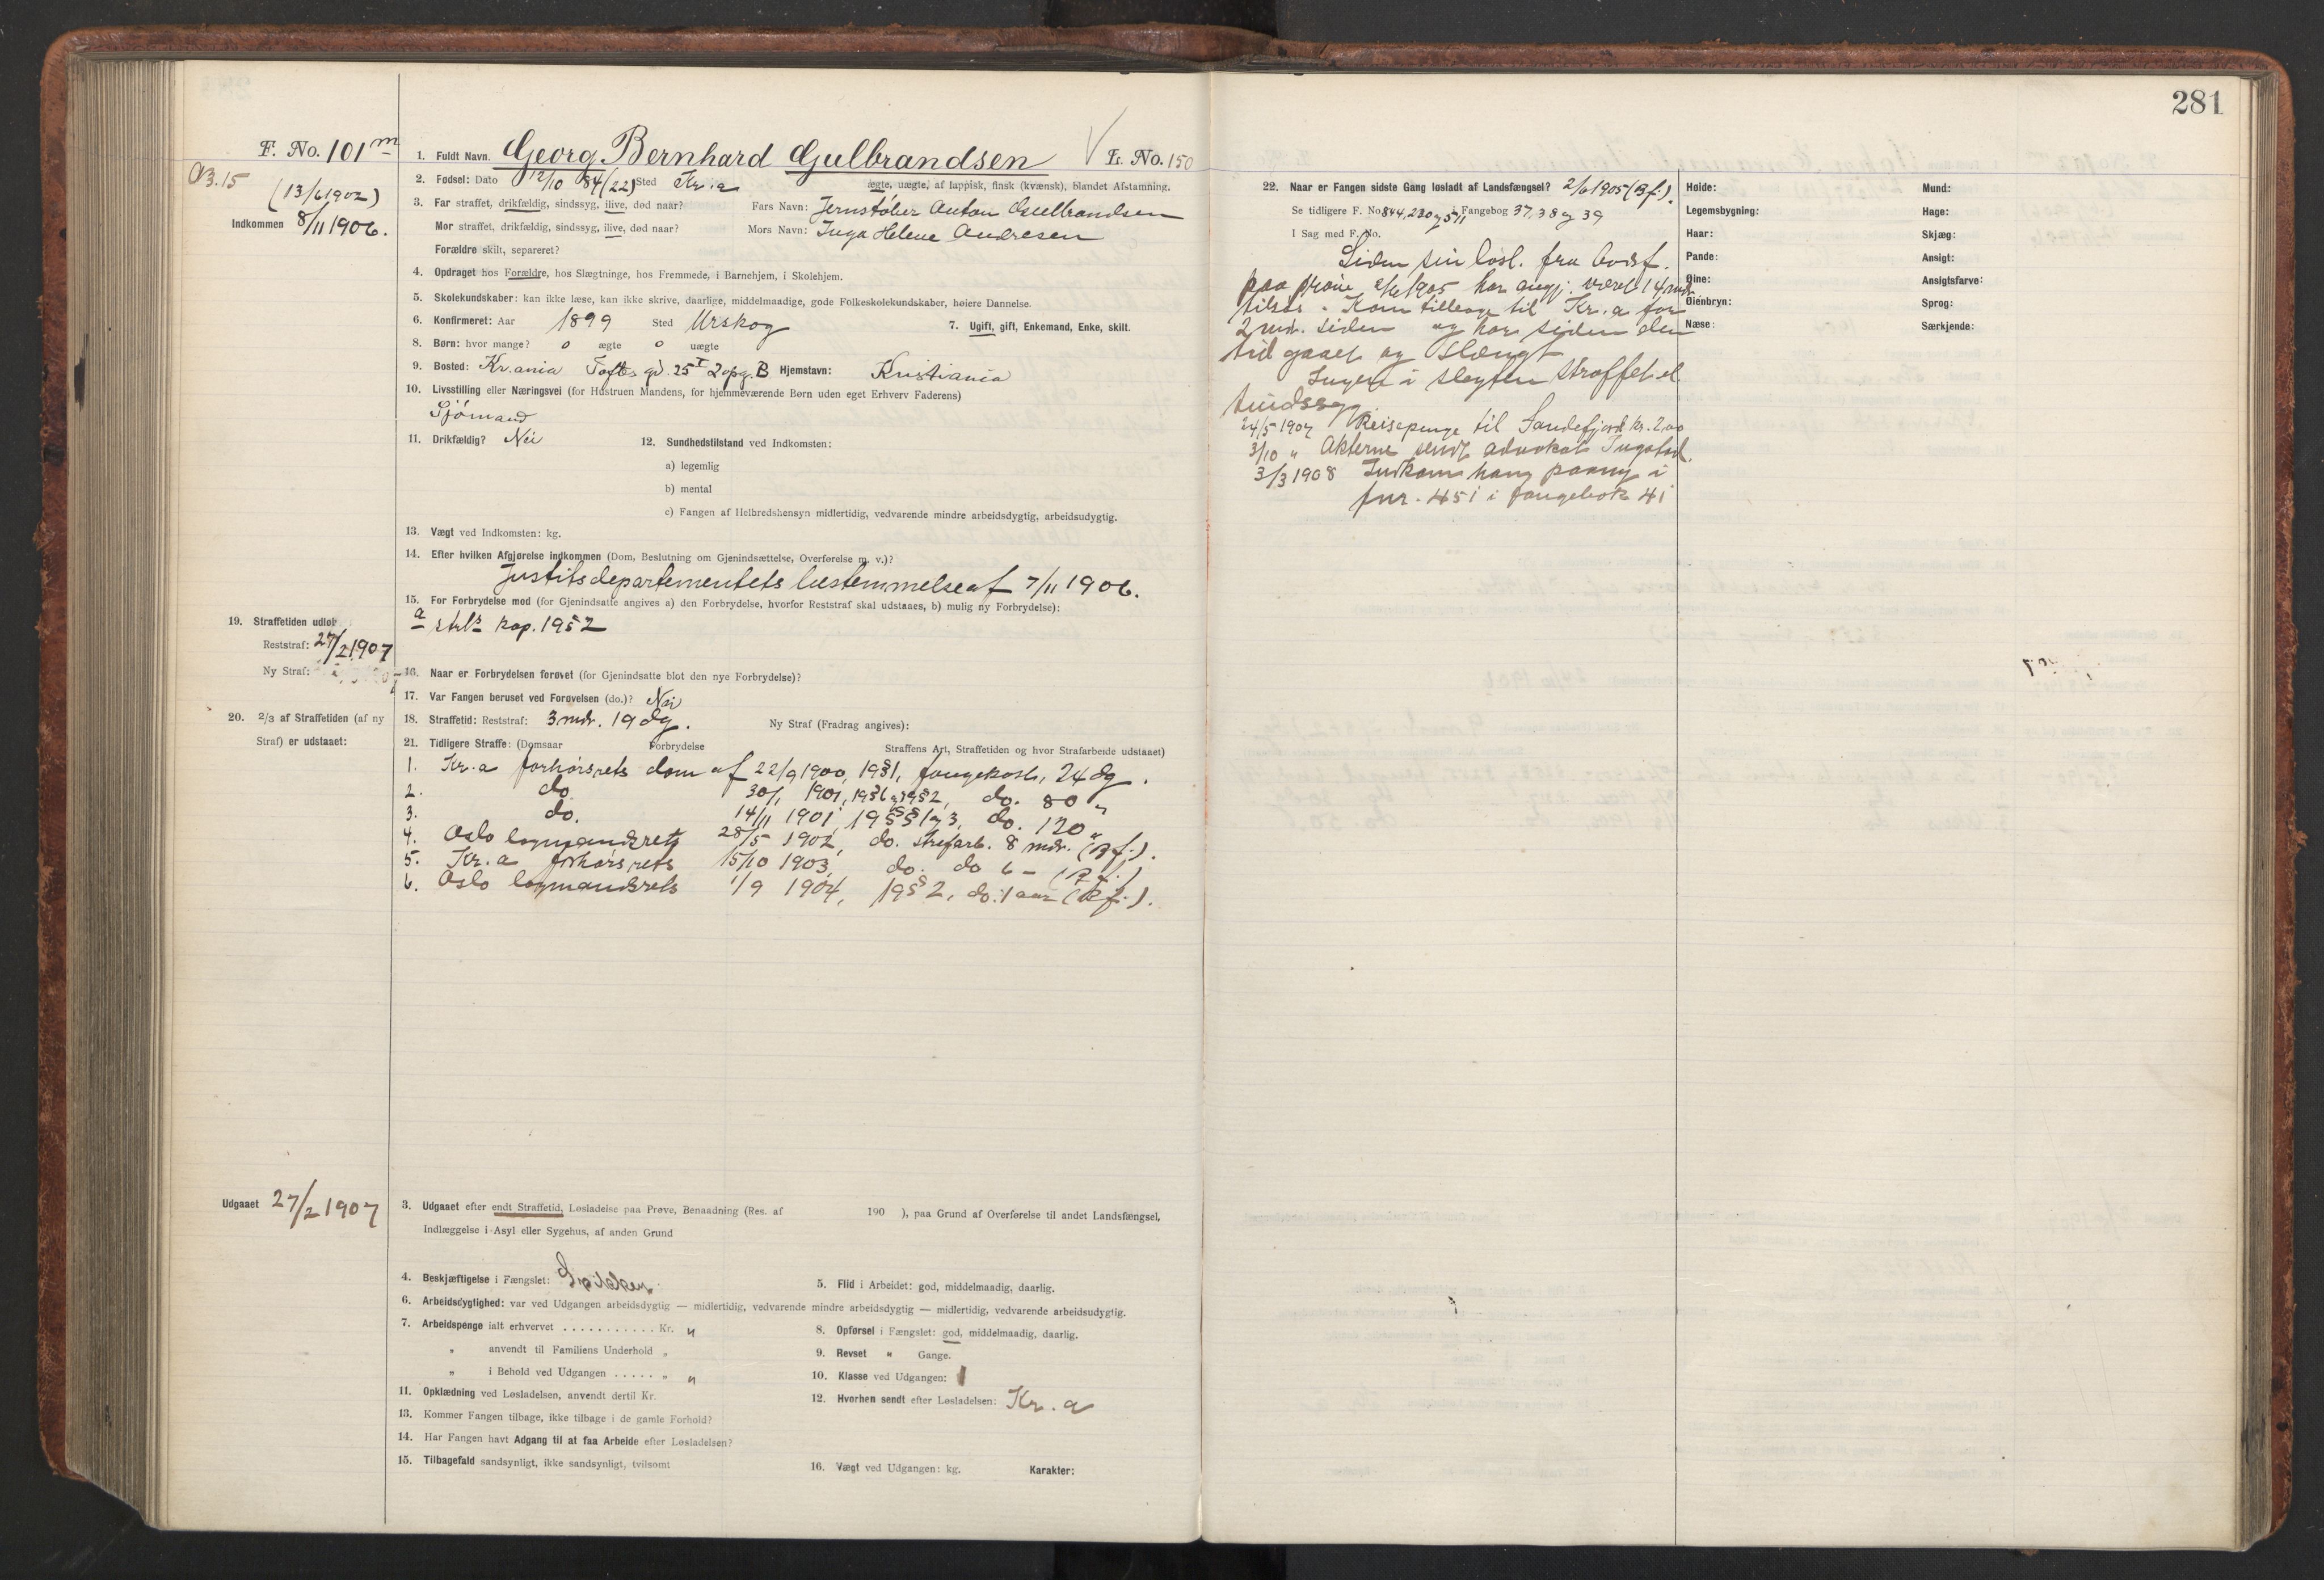 281
F. No. 101 m
1. Fuldt Navn. Georg Bernhard Gulbrandsen F. No. 150
(13/6 1902)
Indkommen 8/11 1906.
2. Fødsel: Dato 12/10 84 (22) Sted Kr.a ægte, uægte, af lappisk, finsk (kvænsk), blandet Afstamning.
3. Far straffet, drikfældig, sindssyg, ilive, død naar? Fars Navn: Jernstøber Anton Gulbrandsen
Mor straffet, drikfældig, sindssyg, ilive, død naar? Mors Navn: Inga Helene Andresen
Forældre skilt, separeret?
4. Opdraget hos Forældre, hos Slægtninge, hos Fremmede, i Barnehjem, i Skolehjem.
5. Skolekundskaber: kan ikke læse, kan ikke skrive, daarlige, middelmaadige, gode Folkeskolekundskaber, høiere Dannelse.
6. Konfirmeret: Aar 1899 Sted Urskog 7. Ugift, gift, Enkemand, Enke, skilt.
8. Børn: hvor mange? 0 ægte 0 uægte
9. Bosted: Kr.ania Toftes gd. 25 I 2 opg. B Hjemstavn: Kristiania
10. Livsstilling eller Næringsvei (for Hustruen Mandens, for hjemmeværende Børn uden eget Erhverv Faderens)
Sjømand
11. Drikfældig? Nei 12. Sundhedstilstand ved Indkomsten:
a) legemlig
b) mental
c) Fangen af Helbredshensyn midlertidig, vedvarende mindre arbeidsdygtig, arbeidsudygtig.
13. Vægt ved Indkomsten: kg.
14. Efter hvilken Afgjørelse indkommen (Dom, Beslutning om Gjenindsættelse, Overførelse m. v.)?
Justitsdepartementets bestemmelse af 7/11 1906.
15. For Forbrydelse mod (for Gjenindsatte angives a) den Forbrydelse, hvorfor Reststraf skal udstaaes, b) mulig ny Forbrydelse):
a strls kap. 19 § 2
19. Straffetiden udløb
Reststraf: 27/2 1907
Ny Straf:
16. Naar er Forbrydelsen forøvet (for Gjenindsatte blot den nye Forbrydelse)?
17. Var Fangen beruset ved Forøvelsen (do.)? Nei
18. Straffetid: Reststraf: 3 mdr. 19 dg. Ny Straf (Fradrag angives):
20. 2/3 af Straffetiden (af ny
Straf) er udstaaet:
21. Tidligere Straffe: (Domsaar Forbrydelse Straffens Art, Straffetiden og hvor Strafarbeide udstaaet)
1. Kr.a forhørsrets dom af 22/9 1900, 19 § 1, fangekost, 24 dg.
2. do. 30/1 1901, 19 § 1 og 19 § 2, do. 80 "
3. do. 14/11 1901, 19 §§ 1 og 3, do. 120 "
4. Oslo lagmandsrets 28/5 1902, do. strafarb. 8 mdr. (Bf.).
5. Kr.a forhørsrets 15/10 1903, do. do 6 –
6. Oslo lagmandsrets 1/9 1904, 19 § 2, do. 1 aar (Bf.).
Udgaaet 27/2 1907
3. Udgaaet efter endt Straffetid, Løsladelse paa Prøve, Benaadning (Res. af 190 ), paa Grund af Overførelse til andet Landsfængsel,
Indlæggelse i Asyl eller Sygehus, af anden Grund
4. Beskjæftigelse i Fængslet: 5. Flid i Arbeidet: god, middelmaadig, daarlig.
6. Arbeidsdygtighed: var ved Udgangen arbeidsdygtig — midlertidig, vedvarende mindre arbeidsdygtig — midlertidig, vedvarende arbeidsudygtig.
7. Arbeidspenge ialt erhvervet . . . . . . . . . . . Kr. " 8. Opførsel i Fængslet: god, middelmaadig, daarlig.
" anvendt til Familiens Underhold " 9. Revset " Gange.
" i Behold ved Udgangen . . . . . " " 10. Klasse ved Udgangen: 1
11. Opklædning ved Løsladelsen, anvendt dertil Kr. 12. Hvorhen sendt efter Løsladelsen: Kr.a
13. Kommer Fangen tilbage, ikke tilbage i de gamle Forhold?
14. Har Fangen havt Adgang til at faa Arbeide efter Løsladelsen?
15. Tilbagefald sandsynligt, ikke sandsynligt, tvilsomt 16. Vægt ved Udgangen: kg. Karakter:
22. Naar er Fangen sidste Gang løsladt af Landsfængsel? 2/6 1905 (Bf.).
Se tidligere F. No. 844, 230 og 511 i Fangebog 37, 38 og 39
I Sag med F. No.
Siden sin løsl. fra Bodsf.
paa prøve 2/6 1905 har angj. været 14 mdr.
tilsøs. Kom tilbage til Kr.a for
2 mdr. siden og har siden den
tid gaaet og slængt
Ingen i slegten straffet el.
sindssyg.
24/5 1907 Reisepenge til Sandefjord kr. 2,00
3/10 " Akterne sendt advokat
3/3 1908 Indkom hans paany i
fnr. 451 i fangebok 41
Høide: Mund:
Legemsbygning: Hage:
Haar: Skjæg:
Pande: Ansigt:
Øine: Ansigtsfarve:
Øienbryn: Sprog:
Næse: Særkjende: